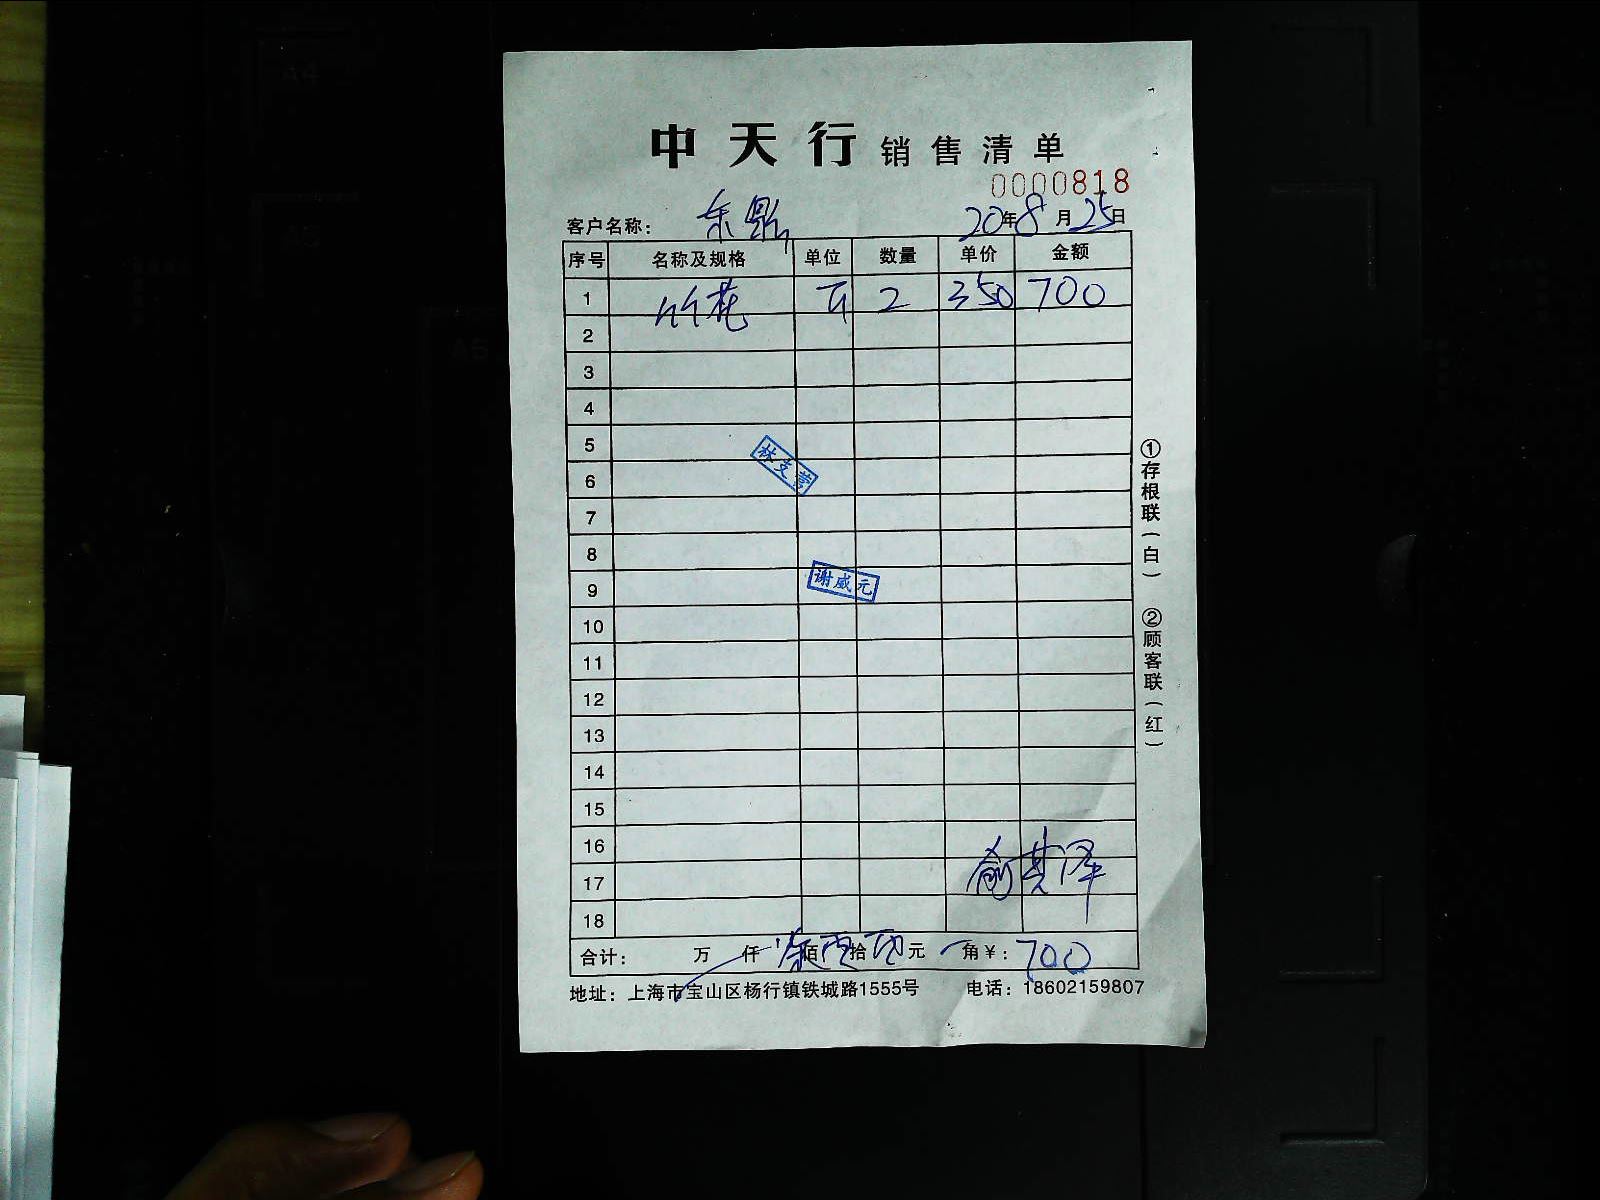 中天行 销售清单
0000818
客户名称: 东鼎 20年8月25日
序号 名称及规格 单位 数量 单价 金额
1 竹花 2 350 700
2
3
4
5
6
7
8
9
10
11
12
13
14
15
16
17
18
林支营
谢威元
俞其泽
合计: 万 仟 柒佰 拾 元 角¥: 700
地址: 上海市宝山区杨行镇铁城路1555号 电话: 18602159807
①存根联(白) ②顾客联(红)
A4
A5